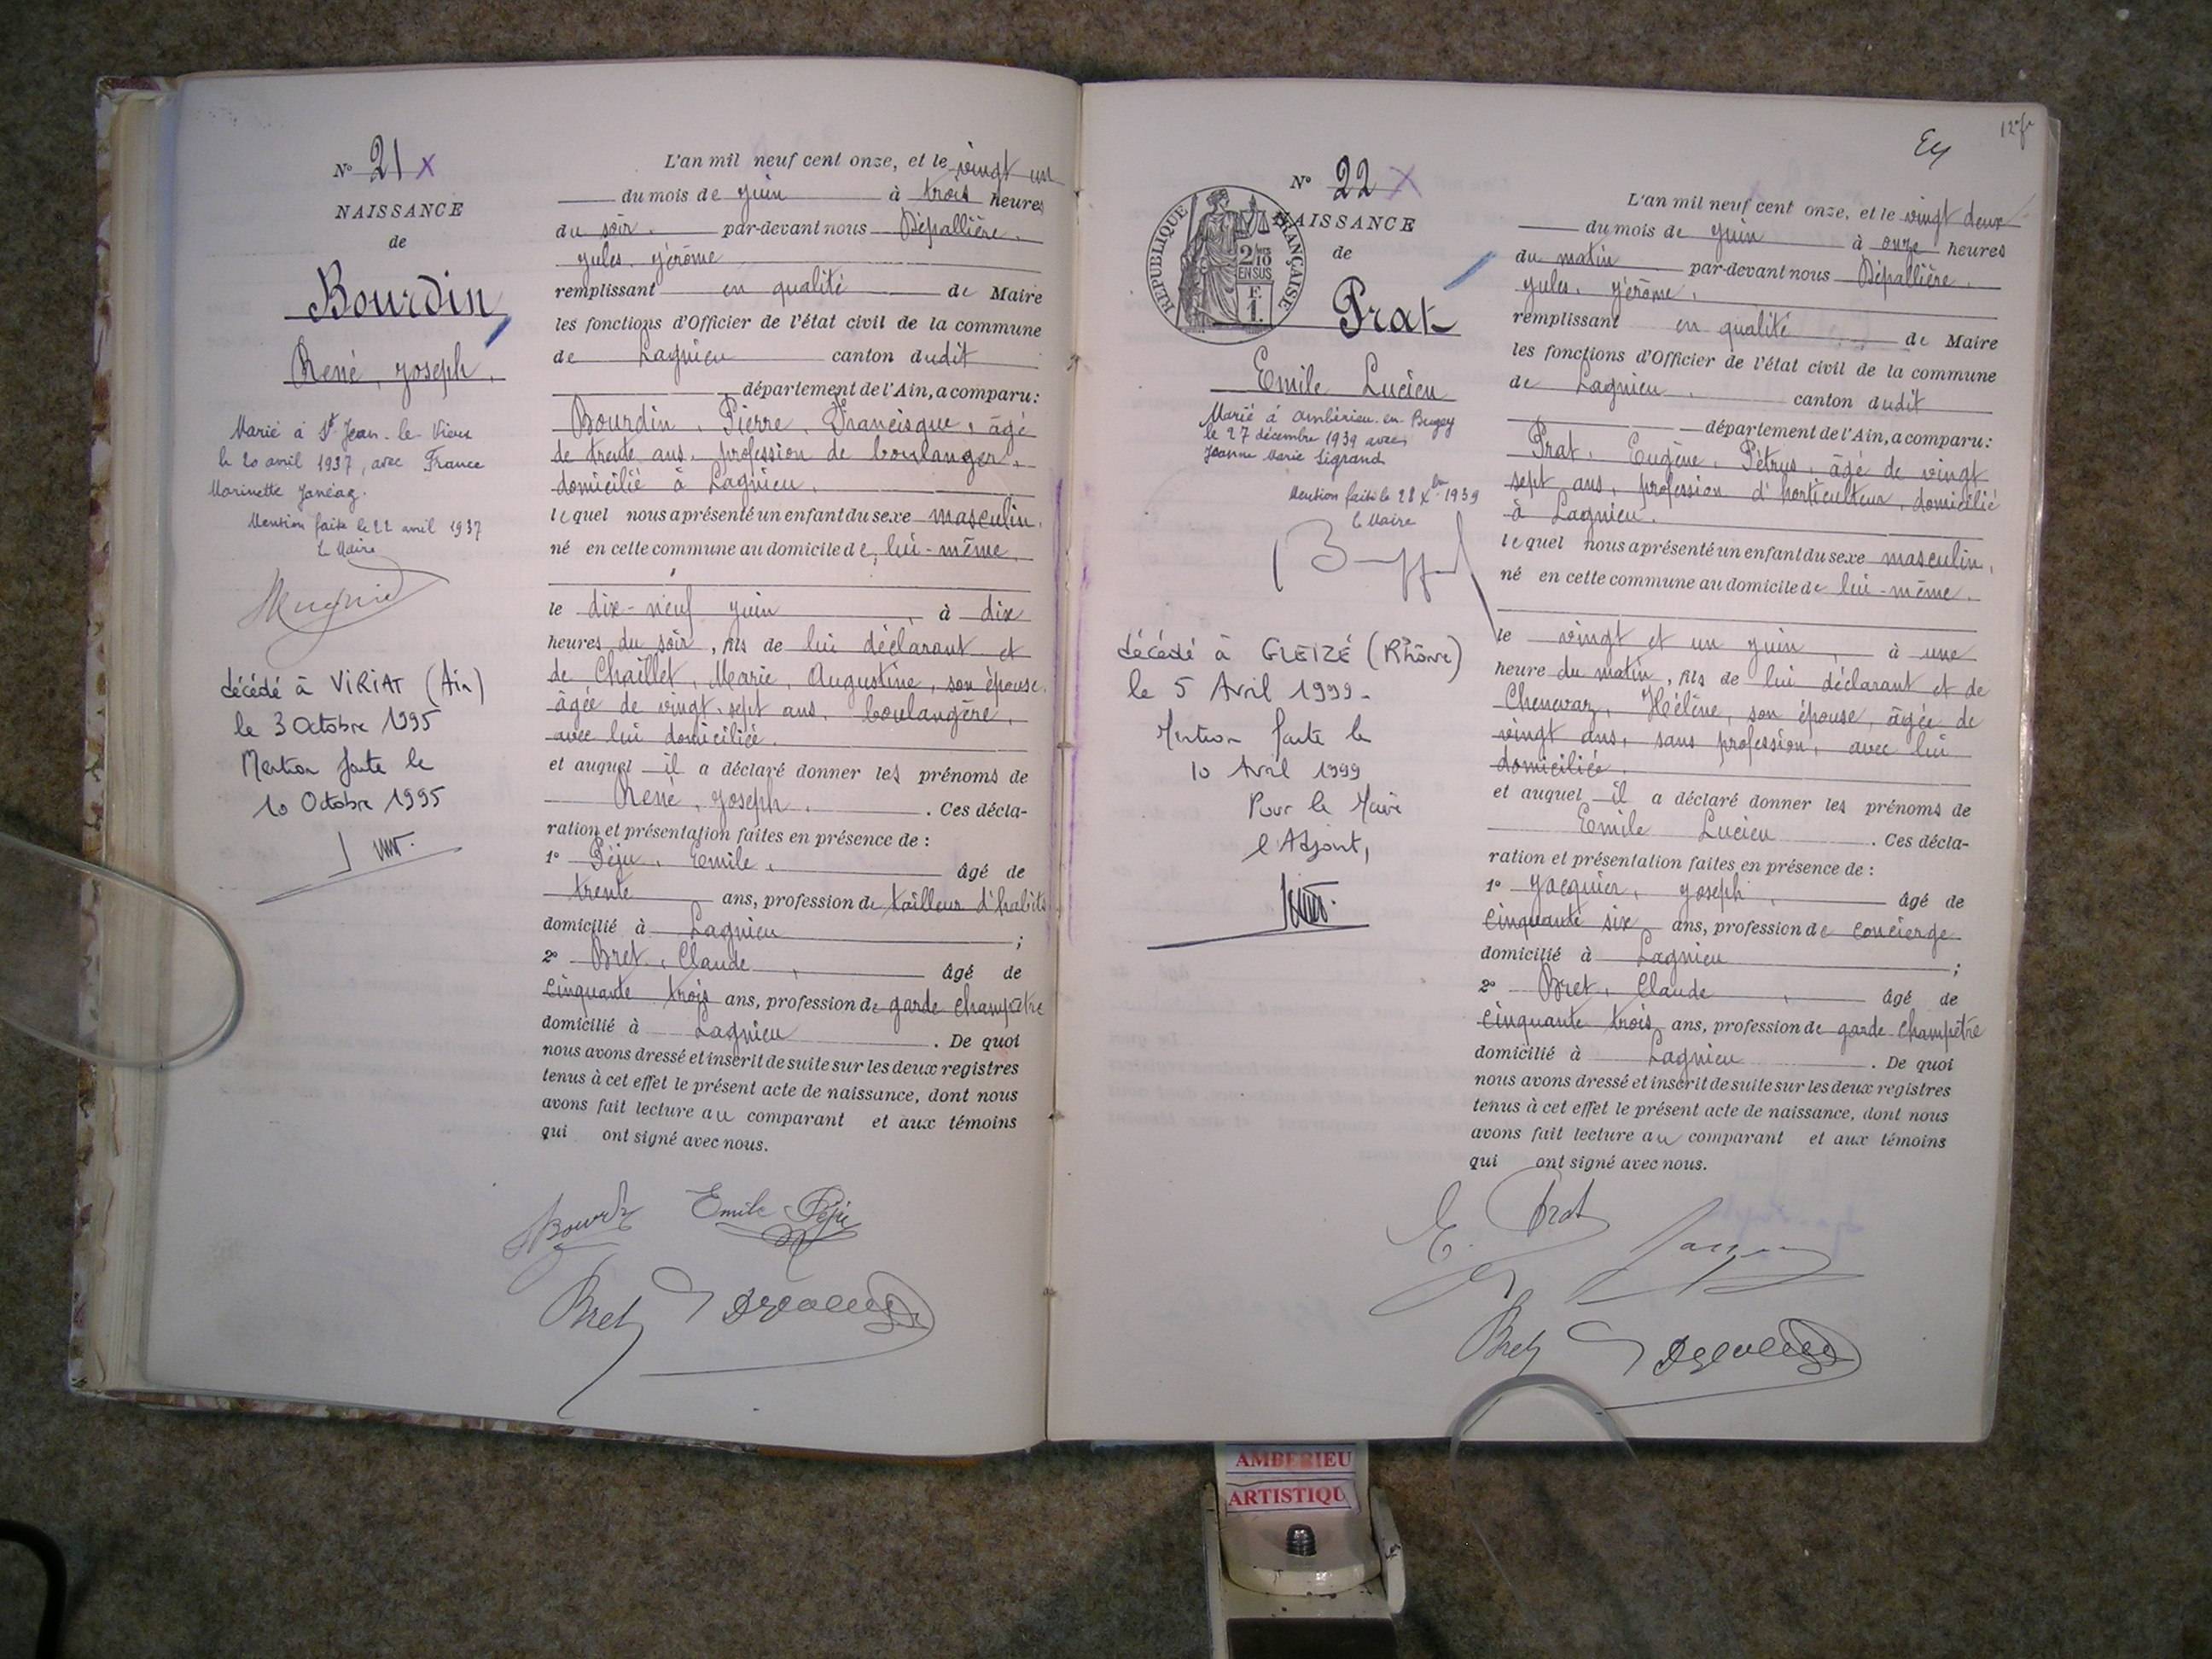 N° 21 X
NAISSANCE
de
Bourdin
René, Joseph.
Marié à St Jean-le-Vieux
le 20 avril 1937, avec France
Marinette Janéaz.
Mention faite le 22 avril 1937
Le Maire
décédé à VIRIAT (Ain)
le 3 Octobre 1995
Mention faite le
10 Octobre 1995
L'an mil neuf cent onze, et le vingt un
du mois de juin à trois heures
du soir. par-devant nous Dépallière.
Jules. Jérôme
remplissant en qualité de Maire
les fonctions d'Officier de l'état civil de la commune
de Lagnieu canton dudit
département de l'Ain, a comparu:
Bourdin, Pierre, Francisque, âgé
de trente ans, profession de boulanger,
domicilié à Lagnieu,
lequel nous a présenté un enfant du sexe masculin,
né en cette commune au domicile de, lui-même,
le dix-neuf juin, à dix
heures du soir, fils de lui déclarant et
de Chaillet, Marie, Augustine, son épouse,
âgée de vingt-sept ans, boulangère,
avec lui domiciliée.
et auquel il a déclaré donner les prénoms de
René, Joseph. . Ces décla-
ration et présentation faites en présence de :
1° Péju, Emile, âgé de
trente ans, profession de tailleur d'habits
domicilié à Lagnieu ;
2° Bret, Claude, âgé de
cinquante trois ans, profession de garde champêtre
domicilié à Lagnieu . De quoi
nous avons dressé et inscrit de suite sur les deux registres
tenus à cet effet le présent acte de naissance, dont nous
avons fait lecture au comparant et aux témoins
qui ont signé avec nous.
Bourdin Emile Péju
Bret
N° 22 X
REPUBLIQUE FRANÇAISE
2/10
EN SUS
F.
1.
NAISSANCE
de
Prat
Emile Lucien
Marié à Ambérieu-en-Bugey
le 27 décembre 1939 avec
Jeanne Marie Sigrand
Mention faite le 28 Xbre 1939
Le Maire
décédé à GLEIZÉ (Rhône)
le 5 Avril 1999-
Mention faite le
10 Avril 1999
Pour le Maire
l'Adjoint,
L'an mil neuf cent onze, et le vingt deux
du mois de juin à onze heures
du matin par-devant nous Dépallière.
Jules. Jérôme.
remplissant en qualité de Maire
les fonctions d'Officier de l'état civil de la commune
de Lagnieu. canton dudit
département de l'Ain, a comparu:
Prat, Eugène, Pétrus, âgé de vingt
sept ans, profession d'horticulteur, domicilié
à Lagnieu.
lequel nous a présenté un enfant du sexe masculin,
né en cette commune au domicile de lui-même.
le vingt et un juin, à une
heure du matin, fils de lui déclarant et de
Chenevaz, Hélène, son épouse, âgée de
vingt ans, sans profession, avec lui
domiciliée.
et auquel il a déclaré donner les prénoms de
Emile Lucien . Ces décla-
ration et présentation faites en présence de :
1° Jacquier, Joseph, âgé de
cinquante six ans, profession de concierge
domicilié à Lagnieu ;
2° Bret, Claude, âgé de
cinquante trois ans, profession de garde-champêtre
domicilié à Lagnieu . De quoi
nous avons dressé et inscrit de suite sur les deux registres
tenus à cet effet le présent acte de naissance, dont nous
avons fait lecture au comparant et aux témoins
qui ont signé avec nous.
E. Prat
Bret
AMBERIEU
ARTISTIQU